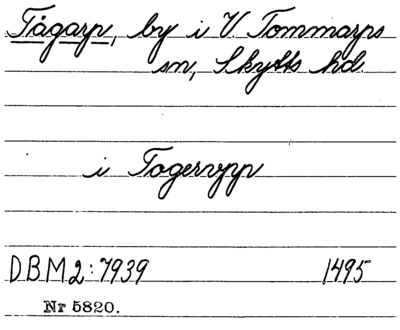 Tågarp, by i V Tommarps
sn, Skytts hd.
i Togerupp
DBM2:7939 1495
Nr 5820.